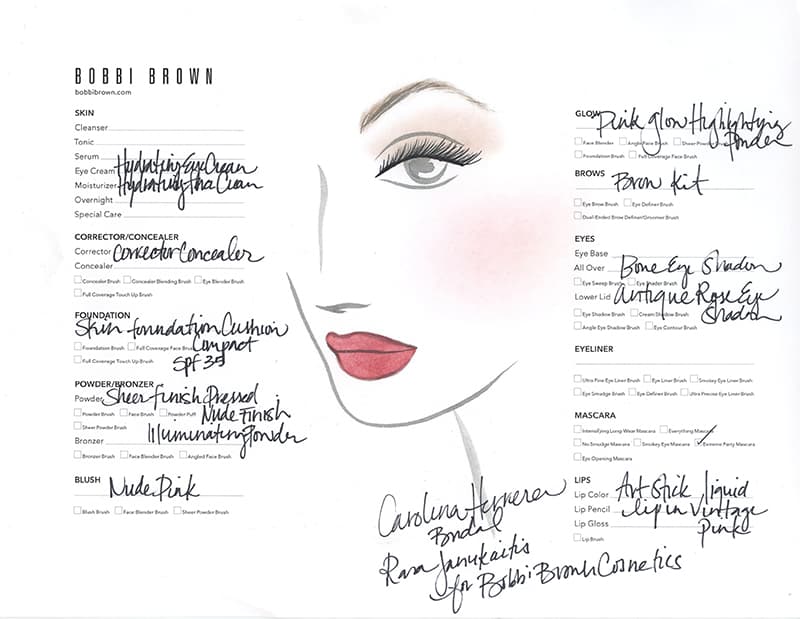 BOBBI BROWN
bobbibrown.com
SKIN
Cleanser
Tonic
Serum
Eye Cream Hydrating Eye Cream
Moisturizer Hydrating Face Cream
Overnight
Special Care
CORRECTOR/CONCEALER
Corrector Corrector Concealer
Concealer
Concealer Brush Concealer Blending Brush Eye Blender Brush
Full Coverage Touch Up Brush
FOUNDATION
Skin foundation Cushion
Foundation Brush Full Coverage Face Brush Compact
Full Coverage Touch Up Brush SPF 35
POWDER/BRONZER
Powder Sheer finish Pressed
Powder Brush Face Brush Powder Puff Nude Finish
Sheer Powder Brush
Illuminating Powder
Bronzer
Bronzer Brush Face Blender Brush Angled Face Brush
BLUSH
Nude Pink
Blush Brush Face Blender Brush Sheer Powder Brush
GLOW Pink glow Highlighting
Powder
Face Blender Angle Face Brush Sheer Powder
Foundation Brush Full Coverage Face Brush
BROWS
Brow Kit
Eye Brow Brush Eye Definer Brush
Dual-Ended Brow Definer/Groomer Brush
EYES
Eye Base
All Over Bone Eye Shadow
Eye Sweep Brush Eye Shader Brush
Lower Lid Antique Rose Eye
Shadow
Eye Shadow Brush Cream Shadow Brush
Angle Eye Shadow Brush Eye Contour Brush
EYELINER
Ultra Fine Eye Liner Brush Eye Liner Brush Smokey Eye Liner Brush
Eye Smudge Brush Eye Definer Brush Ultra Precise Eye Liner Brush
MASCARA
Intensifying Long-Wear Mascara Everything Mascara
No Smudge Mascara Smokey Eye Mascara Extreme Party Mascara
Eye Opening Mascara
LIPS
Lip Color Art Stick, liquid
Lip Pencil lip in Vintage
Lip Gloss Pink
Lip Brush
Carolina Herrera
Bridal
Rasa Janukaitis
for Bobbi Brown Cosmetics